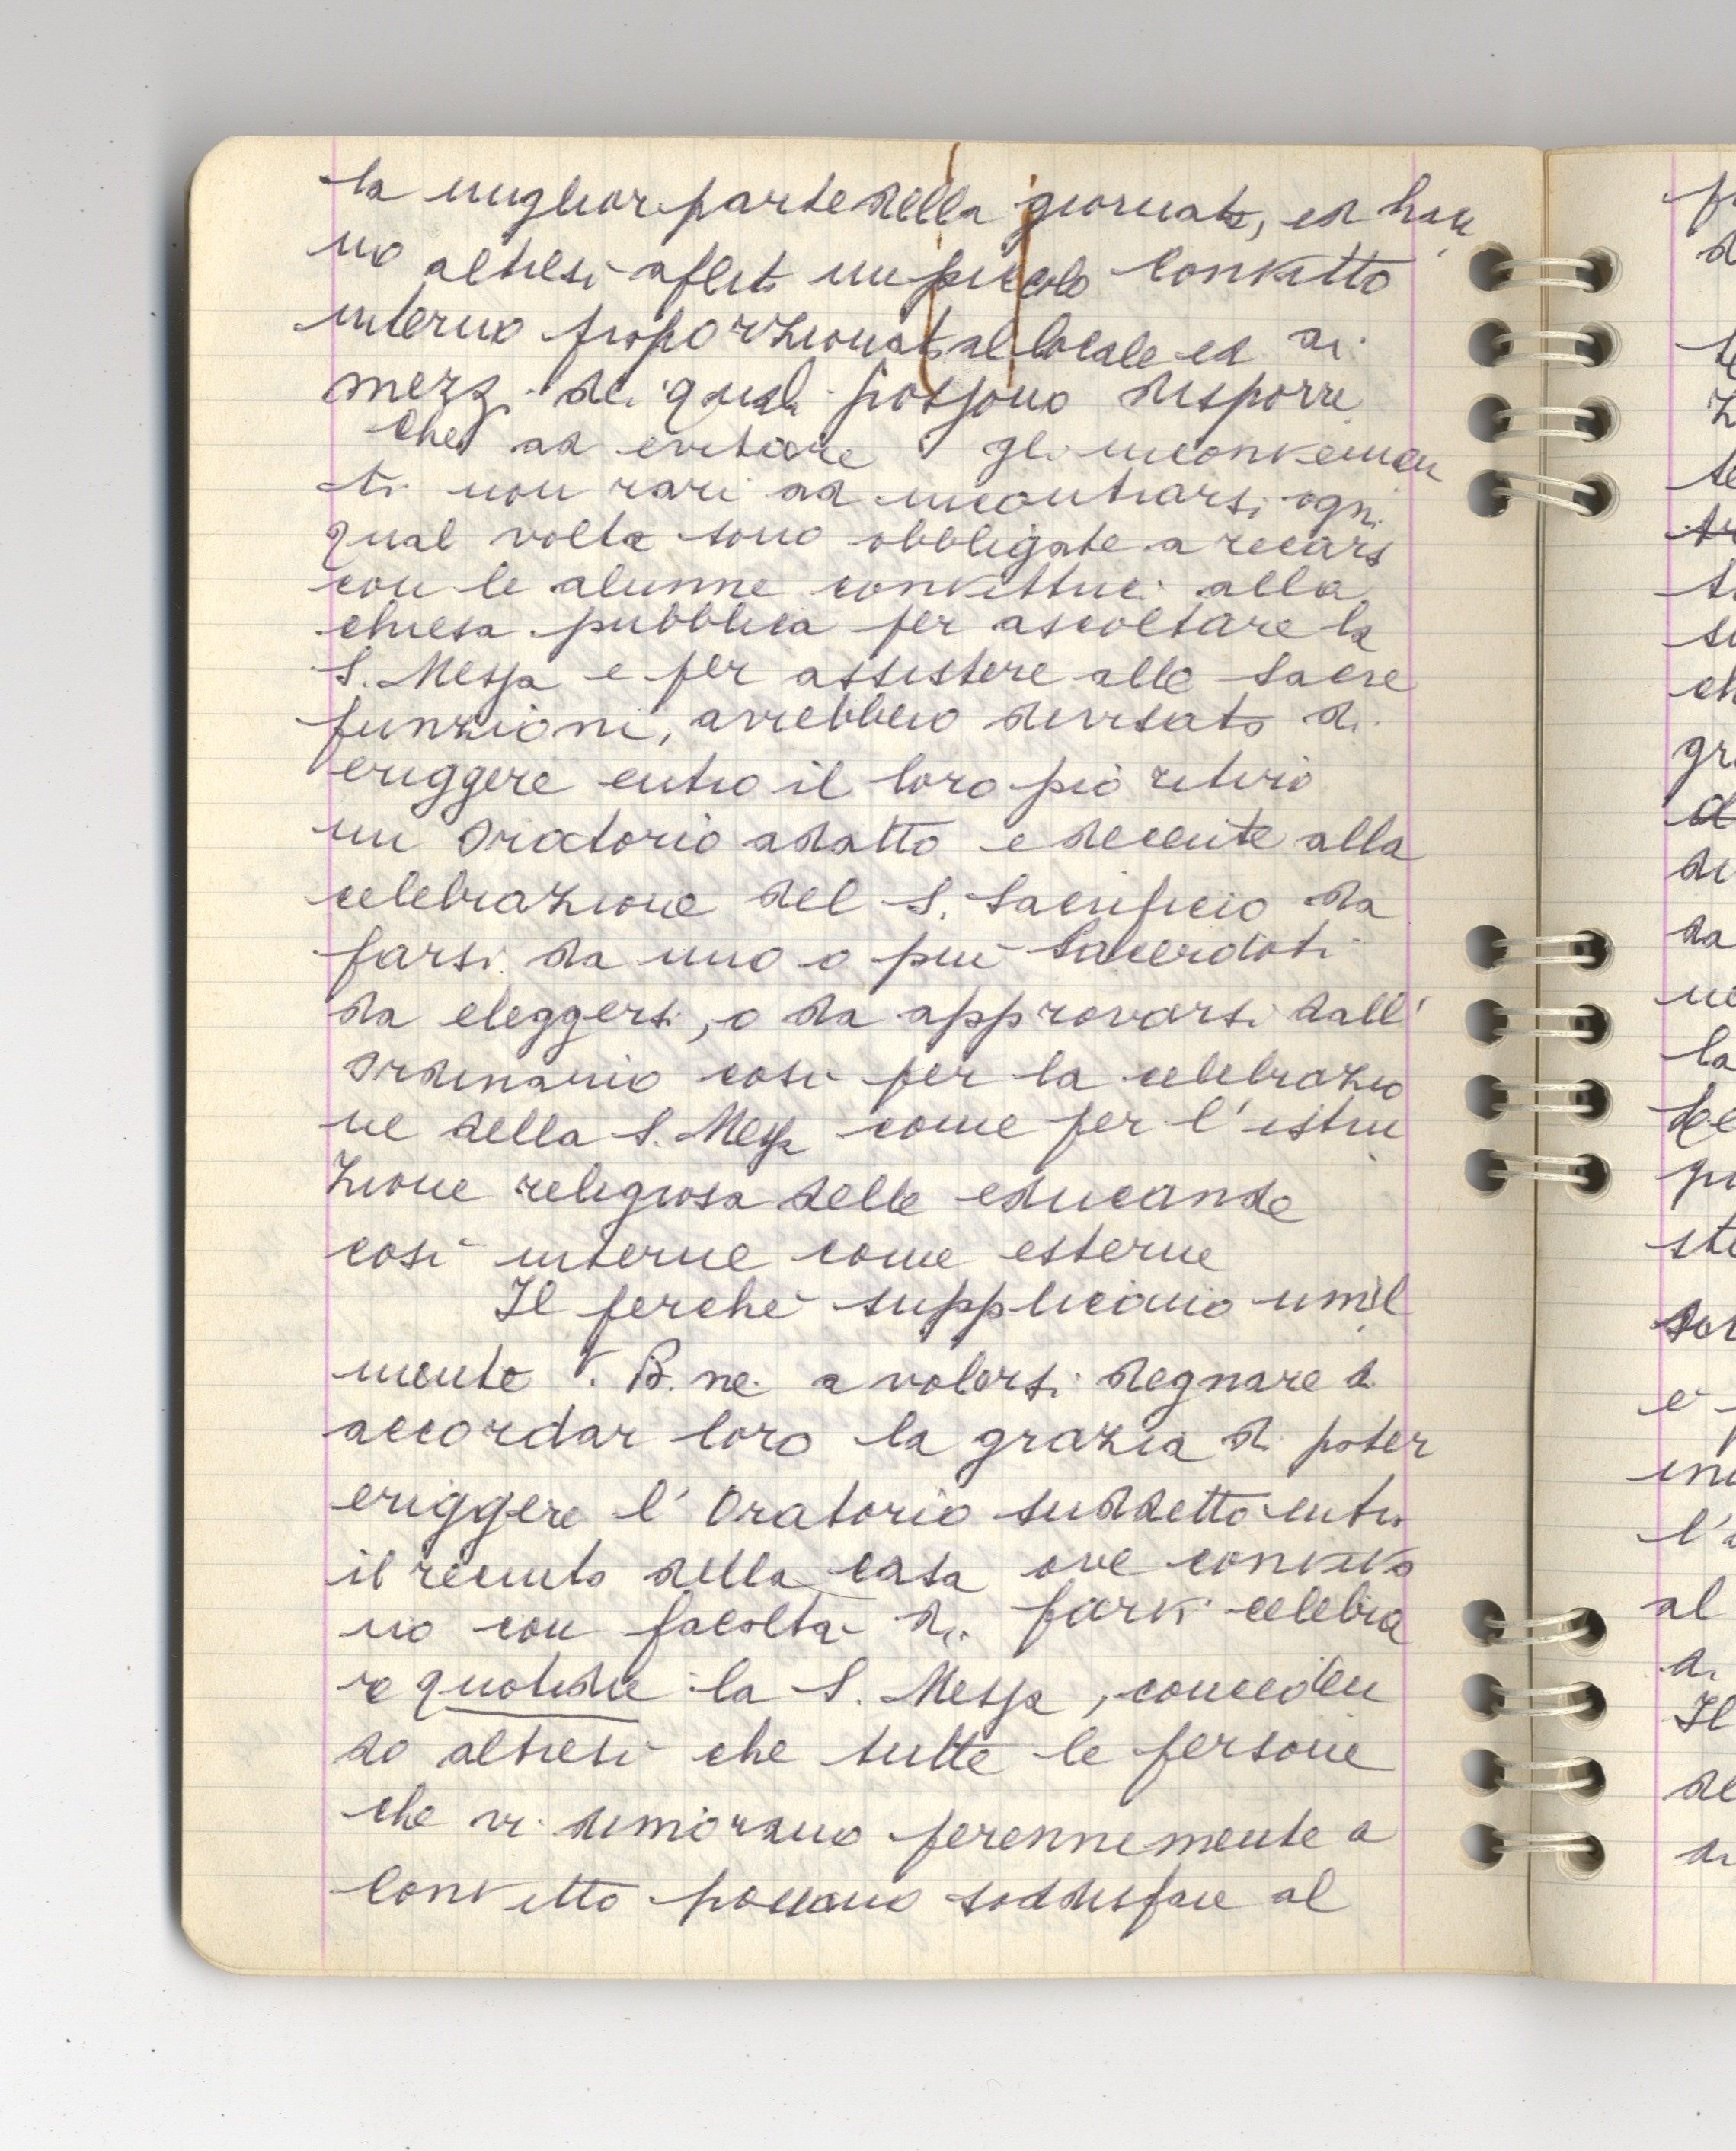 la miglior parte della giornata, ed han
no altresì aperto un piccolo Convitto
interno proporzionato al locale ed ai
mezzi dei quali possono disporre
Che ad evitare gli inconvenien
ti non rari ad incontrarsi ogni
qual volta sono obbligate a recarsi
con le alunne convittrici alla
chiesa pubblica per ascoltare la
S. Messa e per assistere alle sacre
funzioni, avrebbero divisato di
eriggere entro il loro pio ritiro
un Oratorio adatto e decente alla
celebrazione del S. Sacrificio da
farsi da uno o più Sacerdoti
da eleggersi, o da approvarsi dall'
Ordinario così per la celebrazio
ne della S. Messa come per l'istru
zione religiosa delle educande
così interne come esterne
Il perché supplicano umil
mente V. B.ne a volersi degnare di
accordar loro la grazia di poter
eriggere l'Oratorio suddetto entro
il recinto della casa ove convivo
no con facoltà di farvi celebra
re quotidie la S. Messa, conceden
do altresì che tutte le persone
che vi dimorano perennemente a
Convitto possano soddisfare al
fu
d
z
te
su
ch
gr
di
da
ne
la
pu
ste
e
l'a
al
Il
de